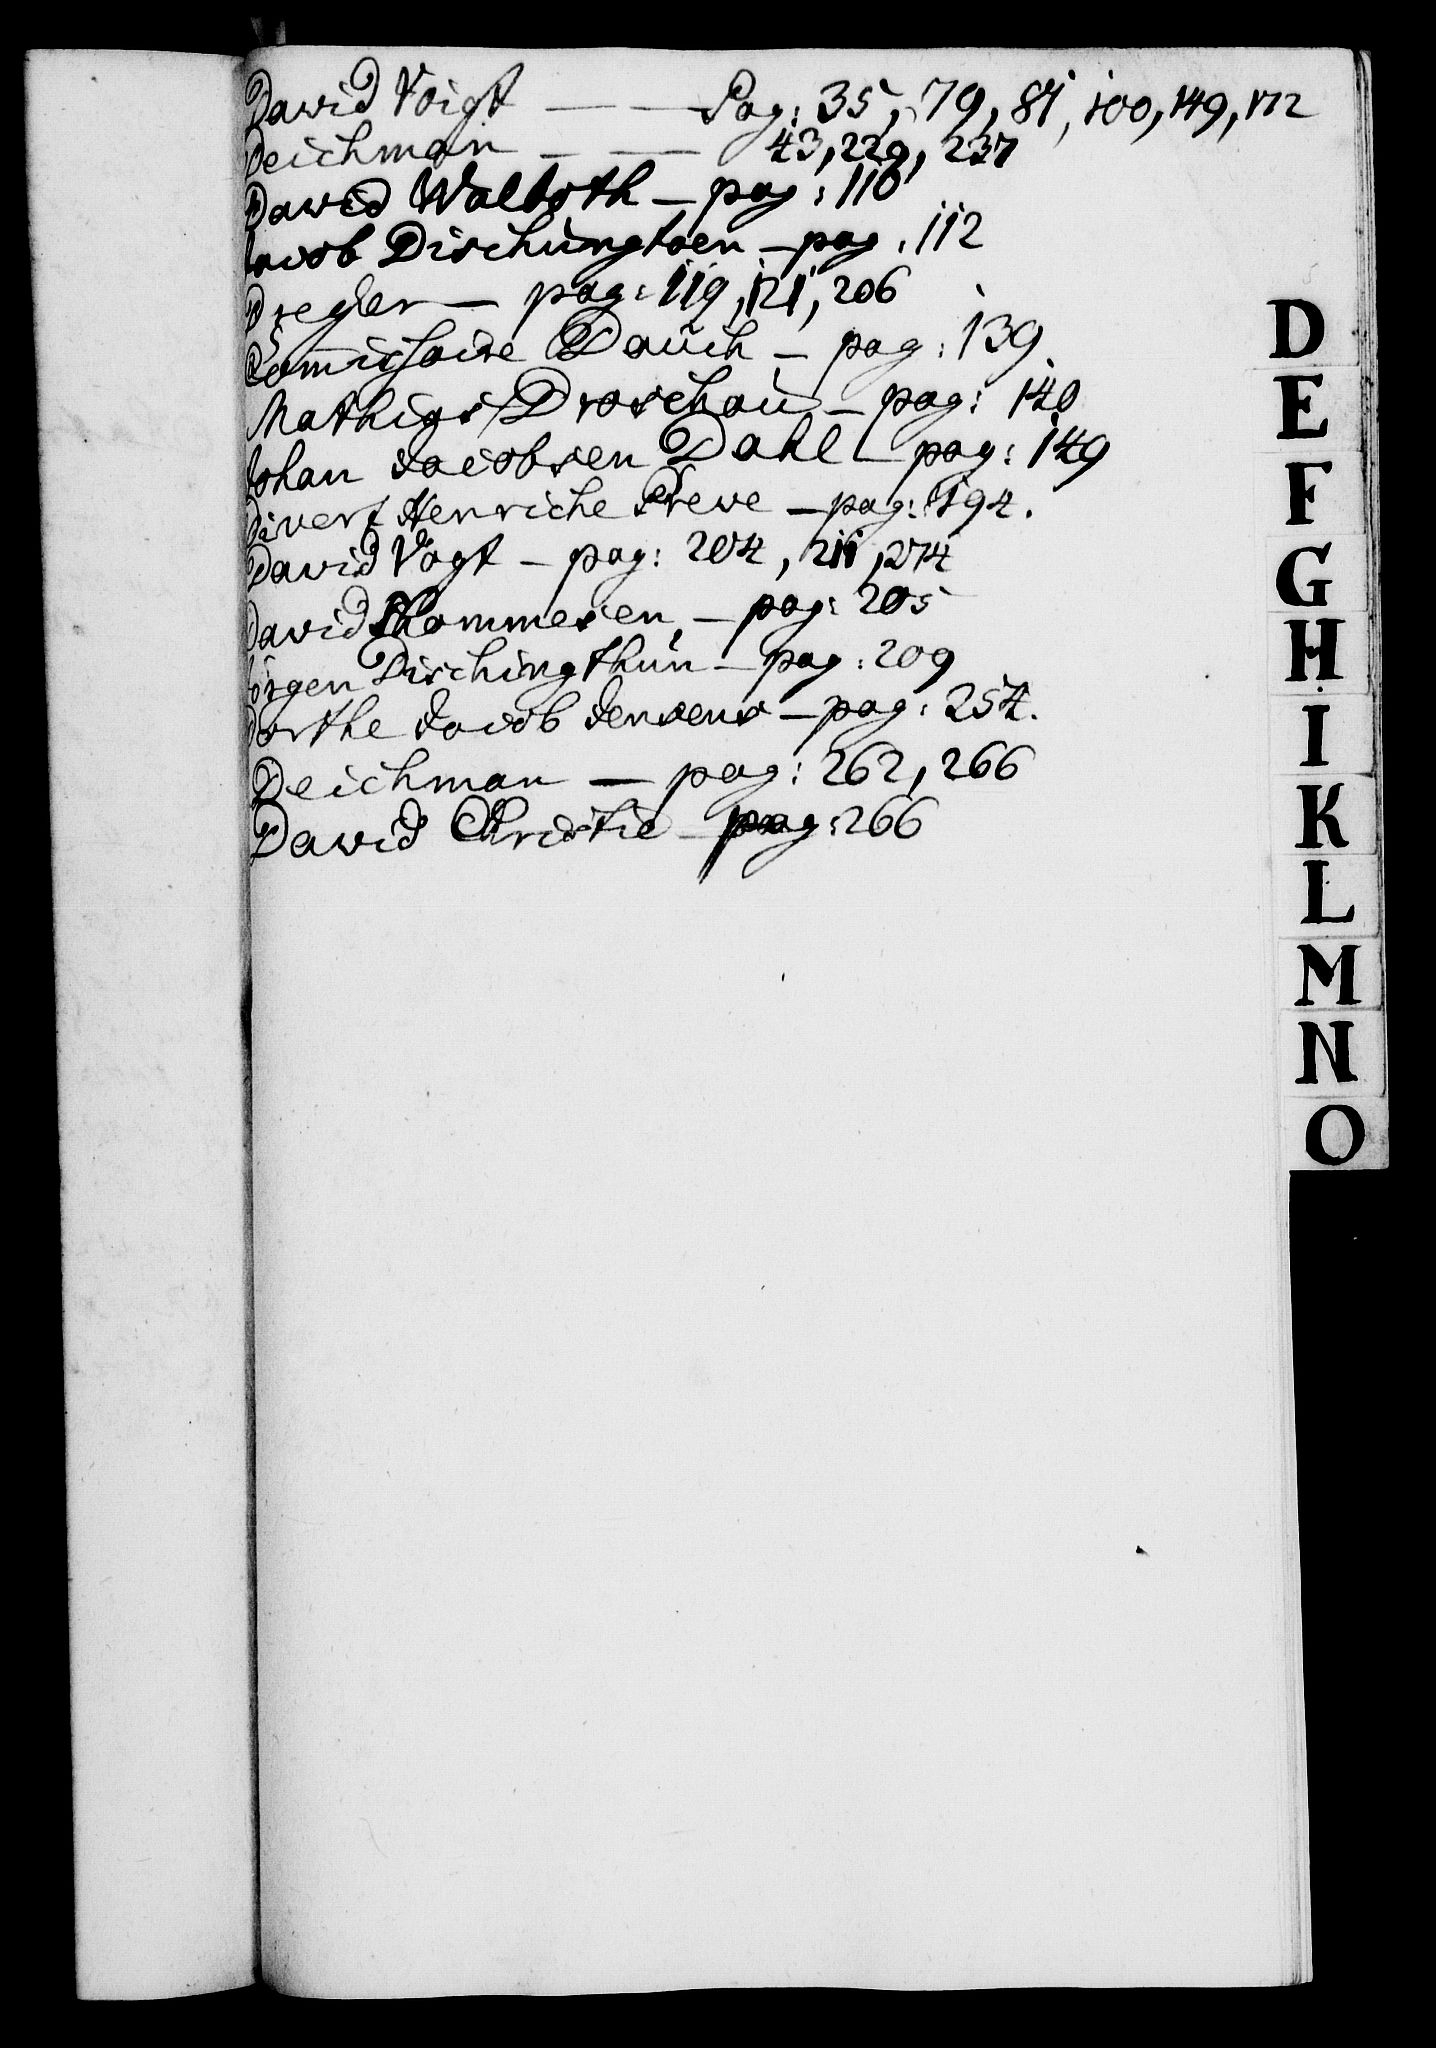 David Voigt — — Pag: 35, 79, 81, 100, 149, 172
Deichman — — 43, 229, 237
David Walboth — pag: 110
Jacob Dischungtoen — pag. 112
Dregler — pag: 119, 121, 206
Commissaire Dauch — pag: 139.
Mathias Droschau — pag: 140
Johan Jacobsen Dahl — pag: 149
Divert Henriche Dreve — pag: 194.
David Vogt — pag: 204, 211, 274
David Thommesen — pag: 205
Jörgen Dischingthun — pag: 209
Dorthe Jacob Jensens — pag: 254.
Deichman — pag: 262, 266
David Christie — pag: 266
D
E
F
G
H
I
K
L
M
N
O